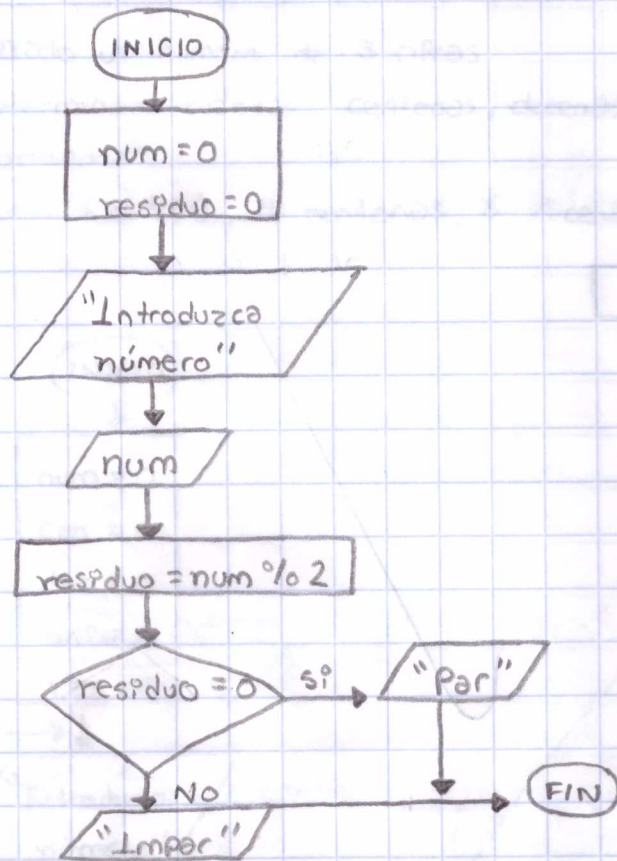 INICIO
num = 0
residuo = 0
"Introduzca
número"
num
residuo = num % 2
residuo = 0
si
"Par"
NO
"Impar"
FIN